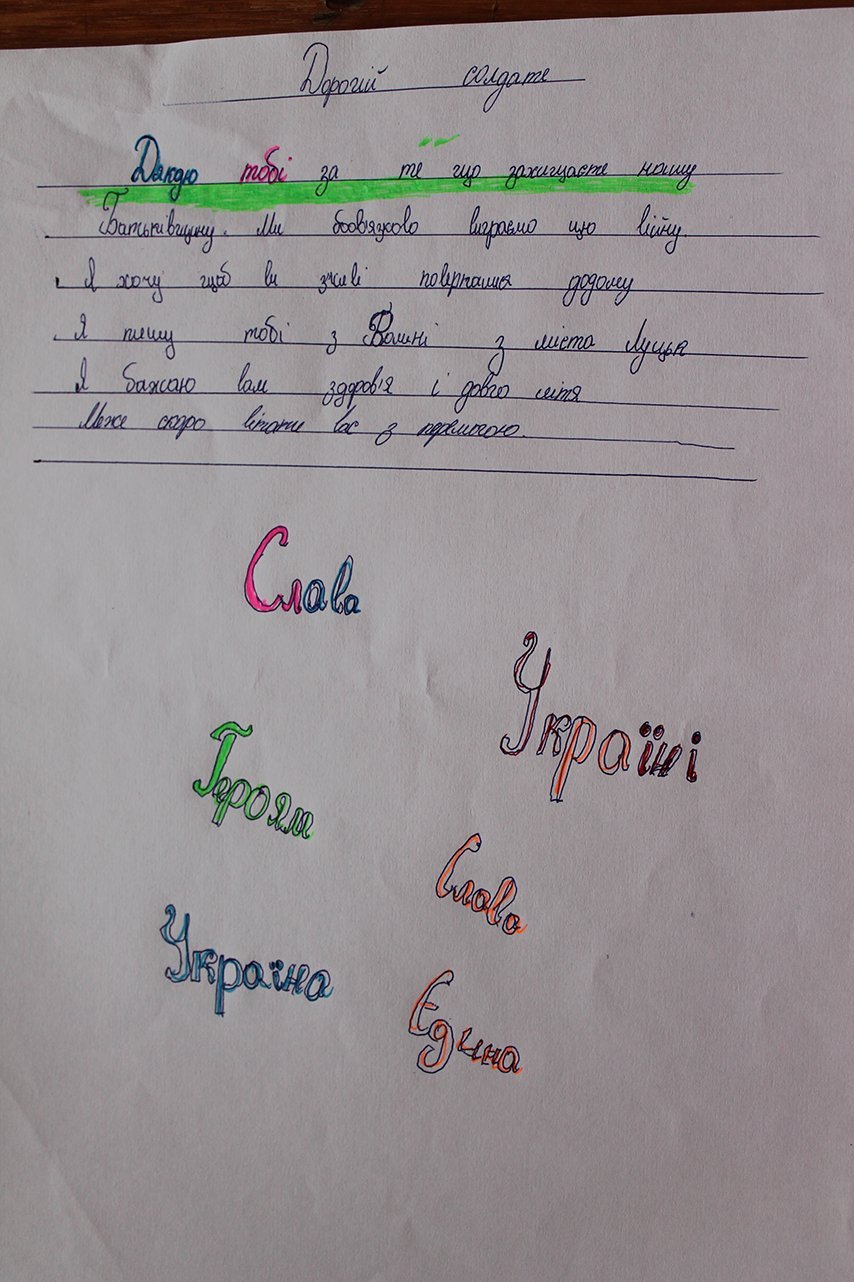 Дорогій солдате
Дякую тобі за те що захищаєте нашу
Батьківщину. Ми обовязково виграємо цю війну.
Я хочу щоб ви живі повернулися додому
Я пишу тобі з Волині з міста Луцьк
Я бажаю вам здоров'я і довго ліття
скоро вітати вас з перемогою.
Слава
Україні
Героям
Слава
Україна
Єдина